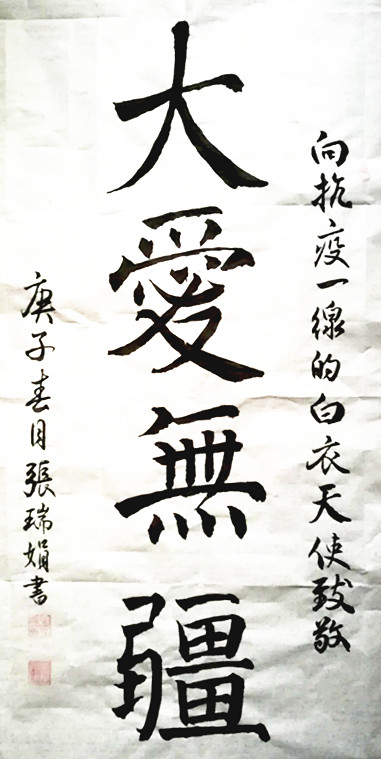 向抗疫一線的白衣天使致敬
大愛無疆
庚子春月張瑞娟書